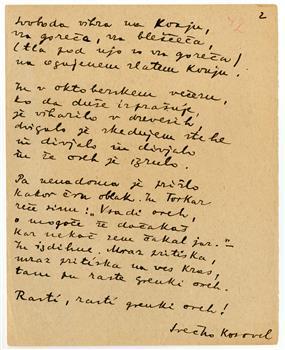 2
Svoboda vihra na konju,
vsa goreča, vsa bleščeča,
(tla pod njo so vsa goreča)
na ognjenem zlatem konju.
In v oktoberskem večeru,
ko da duše izprašuje,
je viharilo v drevesih,
dvigalo je skednjem strehe
in divjalo in divjalo
in že oreh je izrulo.
Pa nenadoma je prišlo
kakor črn oblak. In Torkar
reče sinu: „Vsadi oreh,
o mogoče še dočakaš
kar nekoč sem čakal jaz."
In izdihne. Mraz pritiska,
mraz pritiska na ves Kras,
tam pa raste grenki oreh.
Rasti, rasti grenki oreh!
Srečko Kosovel